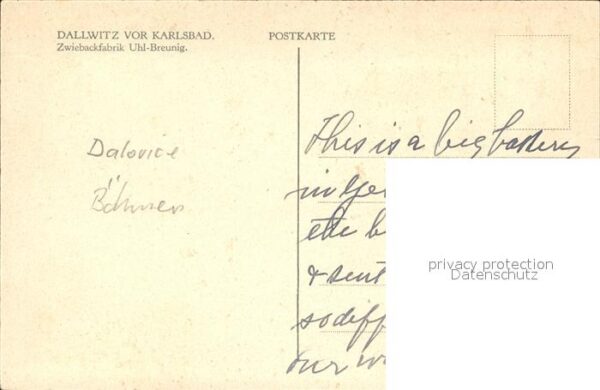 DALLWITZ VOR KARLSBAD.
Zwiebackfabrik Uhl-Breunig.
POSTKARTE
Dalovice
Böhmen
This is a big
in
etc b
& sent
so diff
our w
privacy protection
Datenschutz